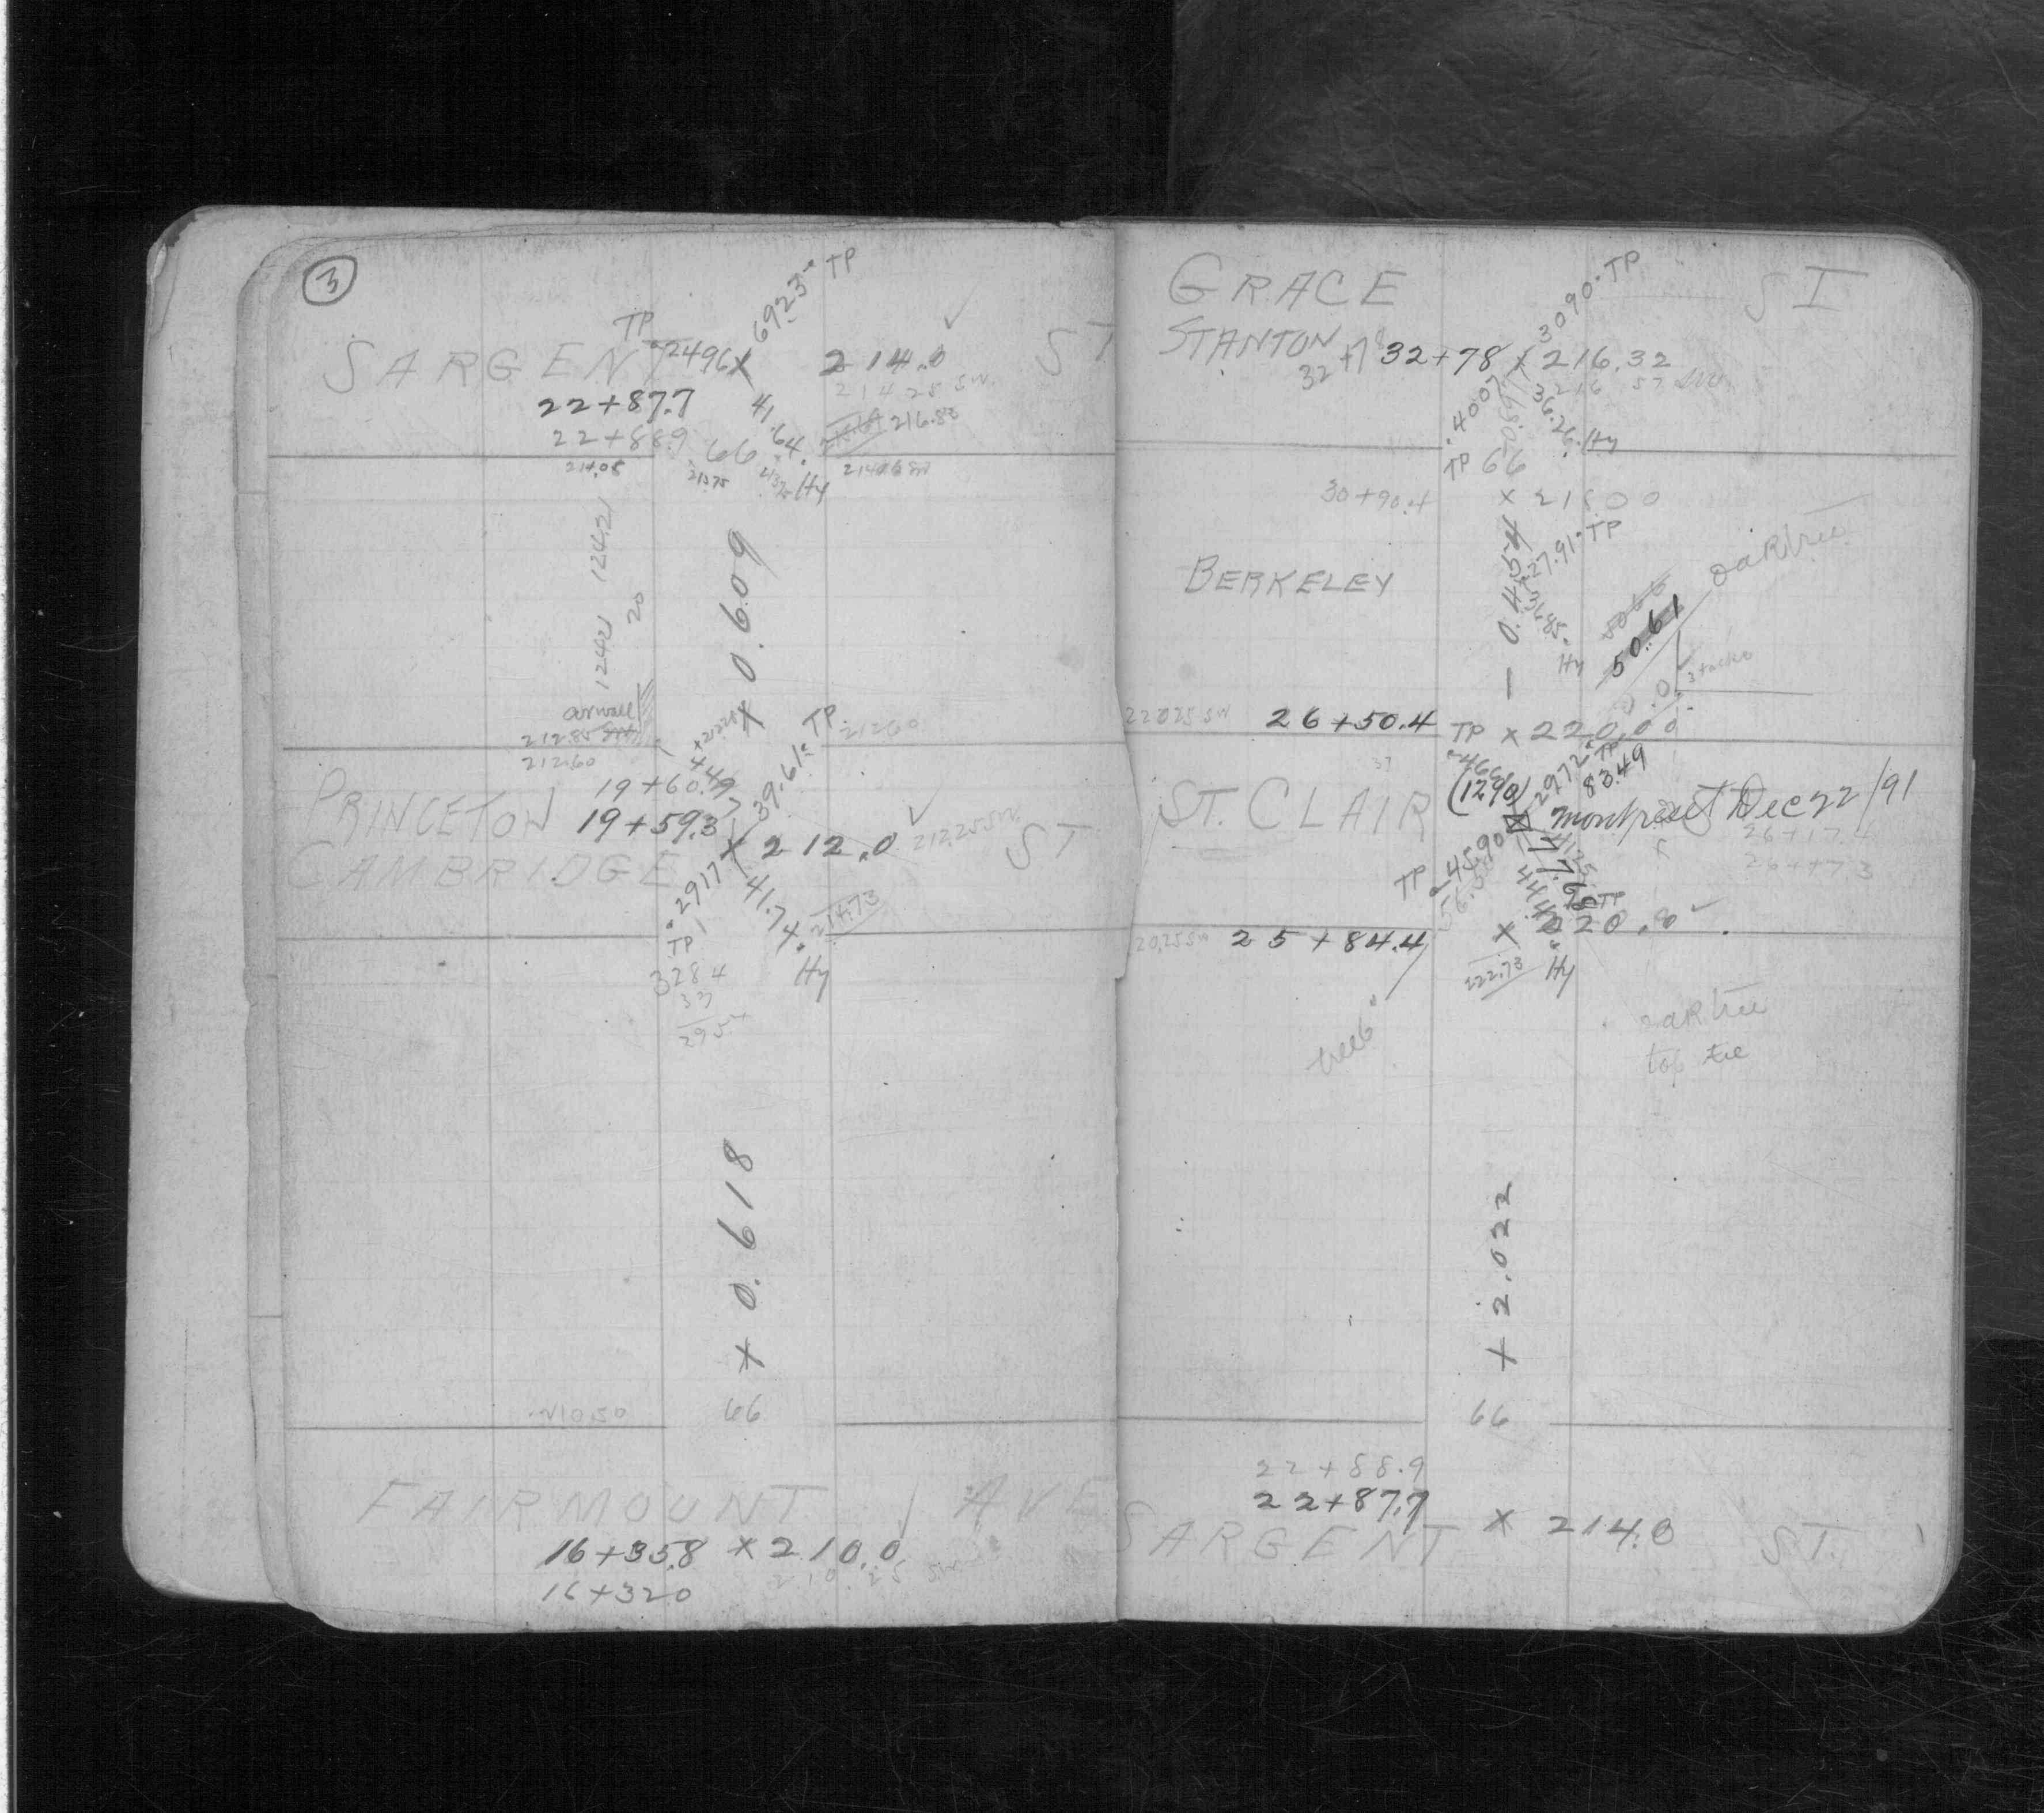 3
TP
6923 TP
SARGENT 2496 x 214.0 ST
22+87.7
214.25 SW
22+889
41.64
216.83
66
214.05
213.75
Hy
124.21
124.21
20
+ 0.609
212.85
212.60
212.60
39.61 TP
19+60.
PRINCETON 19+59.3
x 212.0
212.25 SW
CAMBRIDGE ST
2917
41.74
214.73
TP
Hy
3284
33
+ 0.618
210.50
66
FAIRMOUNT AVE
16+35.8 x 210.0
16+320
210.25 SW
GRACE ST
3090 TP
STANTON
32+78 x 216.32
4007
36.26 Hy
TP 66
30+90.4
x 218 00
BERKELEY
27.91 TP
oak tree
- 0.455
36.85
Hy
5066
50.61
3 tacks
220.25 SW
26+50.4 TP x 220.00
37
2972 TP
83.49
ST. CLAIR
(1290)
Mont reset Dec 22/91
26+17.4
26+47.3
TP 4590
77.65 TP
25+84.4 x 220.0
222.73
Hy
tree
oak tree
top tie
+ 2.022
66
22+88.9
22+87.7
SARGENT x 214.0 ST.